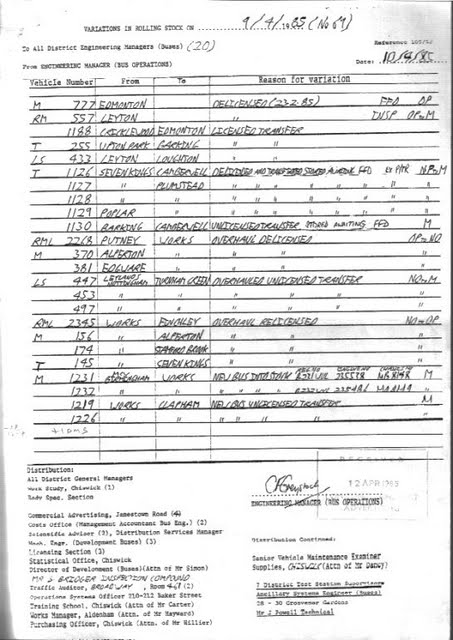 VARIATIONS IN ROLLING STOCK ON 9/4/1985 (No 69)
To All District Engineering Managers (Buses) (20)
From ENGINEERING MANAGER (BUS OPERATIONS) Date: 10/4/85
Vehicle Number From To Reason for variation
M 777 EDMONTON DELICENSED (22.2.85) FFD OP
RM 557 LEYTON " INSP OP to M
1188 CRICKLEWOOD EDMONTON LICENSED TRANSFER
T 255 UPTON PARK BARKING " "
LS 433 LEYTON LOUGHTON " "
T 1126 SEVEN KINGS CAMBERWELL DELICENSED AND TRANSFERRED STORED AWAITING FFD
1127 " PLUMSTEAD " " " " "
1128 " " " " " " "
1129 POPLAR " " " " " "
1130 BARKING CAMBERWELL UNLICENSED TRANSFER STORED AWAITING FFD M
RML 2268 PUTNEY WORKS OVERHAUL DELICENSED OP to NO
M 370 ALPERTON " " " "
381 EDGWARE " " " "
LS 447 LEYLANDS NOTTINGHAM TURNHAM GREEN OVERHAULED UNLICENSED TRANSFER NO to M
453 " " " " "
497 " " " " "
RML 2345 WORKS FINCHLEY OVERHAUL RELICENSED NO to OP
M 156 " ALPERTON " " "
174 " STAMFORD BROOK " " "
T 145 " SEVEN KINGS " " "
M 1231 WORKS NEW BUS INTO STOCK M
1232 " " " " "
1219 WORKS CLAPHAM NEW BUS UNLICENSED TRANSFER M
1226 " " " " " "
RECEIVED
12 APR 1985
ENGINEERING MANAGER (BUS OPERATIONS)
Distribution:
All District General Managers
Work Study, Chiswick (1)
Body Spec. Section
Commercial Advertising, Jamestown Road (4)
Costs Office (Management Accountant Bus Eng.) (2)
Scientific Adviser (2), Distribution Services Manager
Mech. Engr. (Development Buses) (3)
Licensing Section (3)
Statistical Office, Chiswick
Director of Development (Buses)(Attn of Mr Simon)
INSPECTION COMPOUND
Traffic Auditor, BROADWAY, Room
Operations Systems Officer 210-212 Baker Street
Training School, Chiswick (Attn of Mr Carter)
Works Manager, Aldenham (Attn. of Mr Hayward)
Purchasing Officer, Chiswick (Attn of Mr Hillier)
Distribution Continued:
Senior Vehicle Maintenance Examiner
Supplies, CHISWICK (Attn of Mr Danby)
7 District Test Station Supervisors
Ancillary Systems Engineer (Buses)
28 - 30 Grosvenor Gardens
Mr J Powell Technical